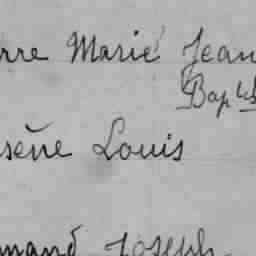 rre Marie Jean
Bapte
sène Louis
mand Joseph